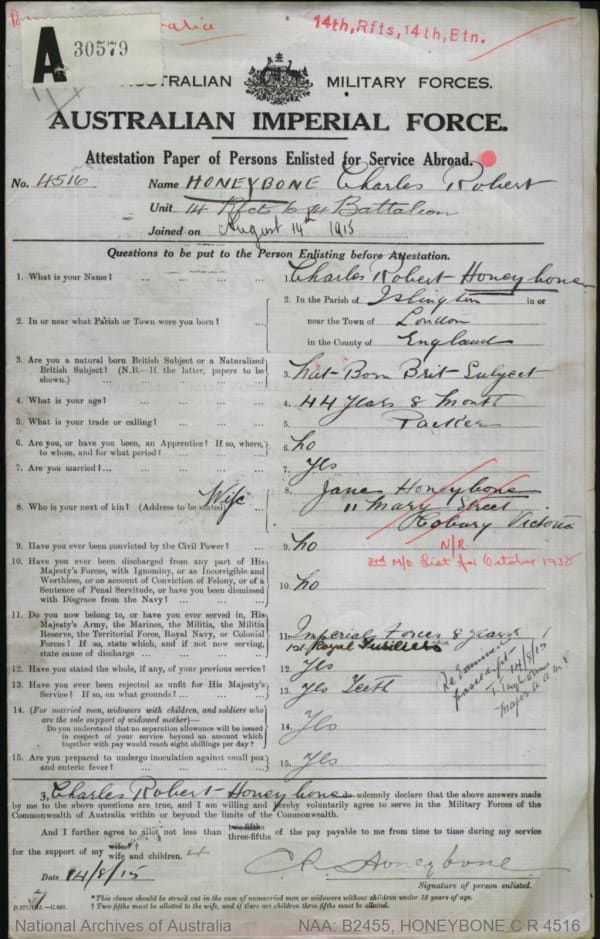 14th, Rfts, 14th, Btn.
A 30579
AUSTRALIAN MILITARY FORCES.
AUSTRALIAN IMPERIAL FORCE.
Attestation Paper of Persons Enlisted for Service Abroad.
No. 4516 Name HONEYBONE Charles Robert
Unit 14 Rfcts to 14 Battalion
Joined on August 14th 1915
Questions to be put to the Person Enlisting before Attestation.
1. What is your Name? ... ... ... ... 1. Charles Robert Honeybone
2. In or near what Parish or Town were you born? ... 2. In the Parish of Islington in or
near the Town of London
in the County of England
3. Are you a natural born British Subject or a Naturalized
British Subject? (N.B.—If the latter, papers to be
shown.) ... ... ... ... 3. Nat-Born Brit Subject
4. What is your age? ... ... ... ... 4. 44 Years 8 Month
5. What is your trade or calling? ... ... ... 5. Packer
6. Are you, or have you been, an Apprentice? If so, where,
to whom, and for what period? ... ... ... 6. No
7. Are you married? ... ... ... ... ... 7. Yes
8. Who is your next of kin? (Address to be stated) Wife 8. Jane Honeybone
11 Mary Street
Coburg Victoria
9. Have you ever been convicted by the Civil Power? ... 9. No
N/R.
3rd M/D List for October 1935
10. Have you ever been discharged from any part of His
Majesty's Forces, with Ignominy, or as Incorrigible and
Worthless, or on account of Conviction of Felony, or of a
Sentence of Penal Servitude, or have you been dismissed
with Disgrace from the Navy? ... ... ... 10. No
11. Do you now belong to, or have you ever served in, His
Majesty's Army, the Marines, the Militia, the Militia
Reserve, the Territorial Force, Royal Navy, or Colonial
Forces? If so, state which, and if not now serving,
state cause of discharge ... ... ... 11. Imperial Forces 8 years
1st Royal Fusiliers
12. Have you stated the whole, if any, of your previous service? 12. Yes
13. Have you ever been rejected as unfit for His Majesty's
Service? If so, on what grounds? ... ... ... 13. Yes Teeth
Re Examined
passed fit
14/8/15
Major A.A.M.C
14. (For married men, widowers with children, and soldiers who
are the sole support of widowed mother)—
Do you understand that no separation allowance will be issued
in respect of your service beyond an amount which
together with pay would reach eight shillings per day? 14. Yes
15. Are you prepared to undergo inoculation against small pox
and enteric fever? ... ... ... ... 15. Yes
I, Charles Robert Honeybone do solemnly declare that the above answers made
by me to the above questions are true, and I am willing and hereby voluntarily agree to serve in the Military Forces of the
Commonwealth of Australia within or beyond the limits of the Commonwealth.
And I further agree to allot not less than two-fifths three-fifths of the pay payable to me from time to time during my service
for the support of my wife† wife and children. 4
Date 14/8/15 C R Honeybone
Signature of person enlisted.
* This clause should be struck out in the case of unmarried men or widowers without children under 18 years of age.
† Two-fifths must be allotted to the wife, and if there are children three-fifths must be allotted.
National Archives of Australia NAA: B2455, HONEYBONE C R 4516